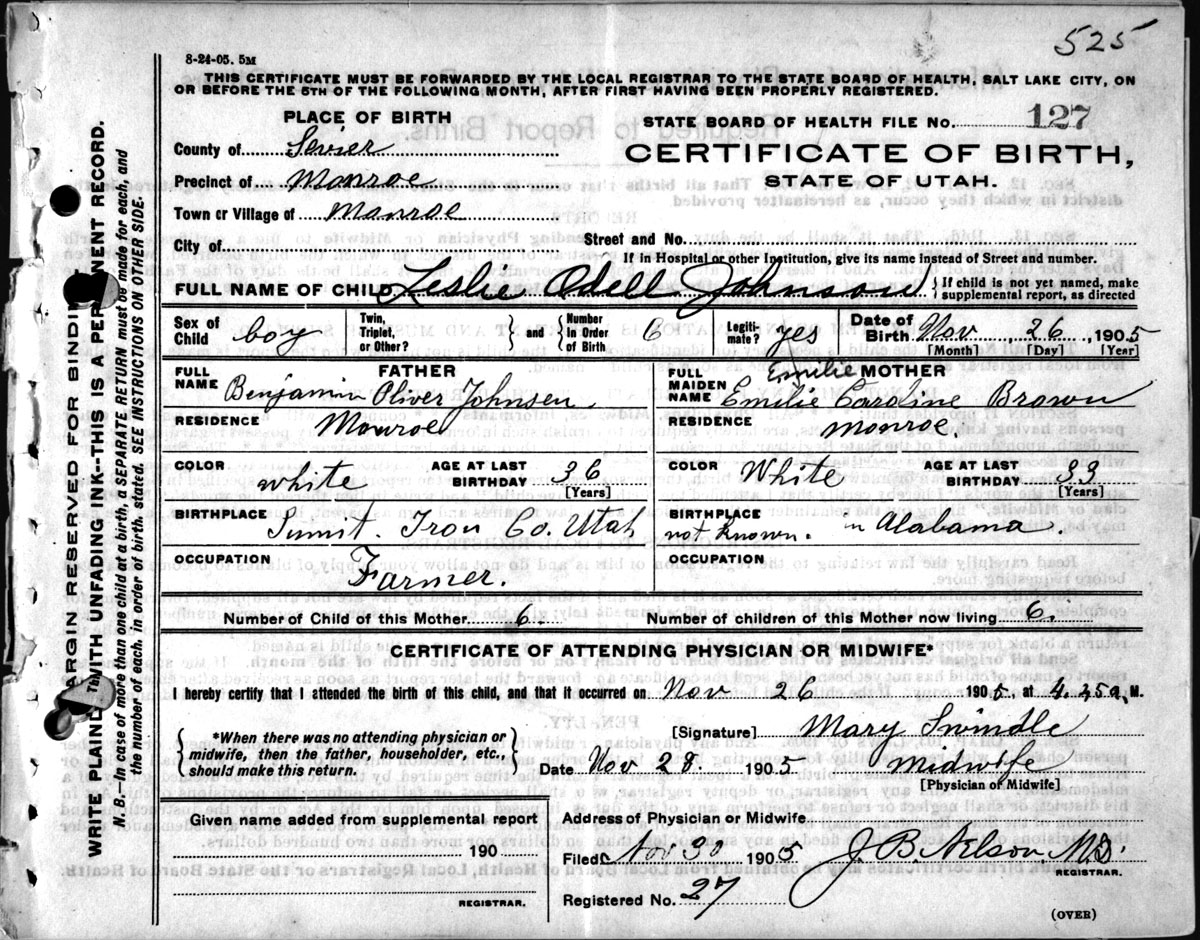 525
8-24-05. 5M
THIS CERTIFICATE MUST BE FORWARDED BY THE LOCAL REGISTRAR TO THE STATE BOARD OF HEALTH, SALT LAKE CITY, ON
OR BEFORE THE 5TH OF THE FOLLOWING MONTH, AFTER FIRST HAVING BEEN PROPERLY REGISTERED.
PLACE OF BIRTH
STATE BOARD OF HEALTH FILE NO. 127
County of Sevier
CERTIFICATE OF BIRTH,
Precinct of Monroe
STATE OF UTAH.
Town or Village of Monroe
City of Street and No.
If in Hospital or other Institution, give its name instead of Street and number.
FULL NAME OF CHILD Leslie Odell Johnson { If child is not yet named, make
supplemental report, as directed
Sex of Child boy Twin, Triplet, or Other? } and { Number in Order of Birth 6 Legiti-mate? yes Date of Birth Nov 26 1905
[Month] [Day] [Year]
FATHER
FULL NAME Benjamin Oliver Johnsen
RESIDENCE Monroe
COLOR white AGE AT LAST BIRTHDAY 36
[Years]
BIRTHPLACE Sumit. Iron Co. Utah
OCCUPATION Farmer.
Emilie MOTHER
FULL MAIDEN NAME Emilie Caroline Brown
RESIDENCE Monroe.
COLOR White AGE AT LAST BIRTHDAY 33
[Years]
BIRTHPLACE not known. in Alabama.
OCCUPATION
Number of Child of this Mother 6. Number of children of this Mother now living 6.
CERTIFICATE OF ATTENDING PHYSICIAN OR MIDWIFE*
I hereby certify that I attended the birth of this child, and that it occurred on Nov 26 1905. at 4.25 a, M.
{ *When there was no attending physician or
midwife, then the father, householder, etc.,
should make this return. }
[Signature] Mary Swindle
Date Nov 28. 1905 midwife
[Physician of Midwife]
Given name added from supplemental report
190
REGISTRAR.
Address of Physician or Midwife
Filed Nov 30 1905 J. B. Nelson, M.D.
REGISTRAR.
Registered No. 27
(OVER)
MARGIN RESERVED FOR BINDING
WRITE PLAINLY WITH UNFADING INK--THIS IS A PERMANENT RECORD.
N. B.—In case of more than one child at a birth, a SEPARATE RETURN must be made for each, and
the number of each, in order of birth, stated. SEE INSTRUCTIONS ON OTHER SIDE.